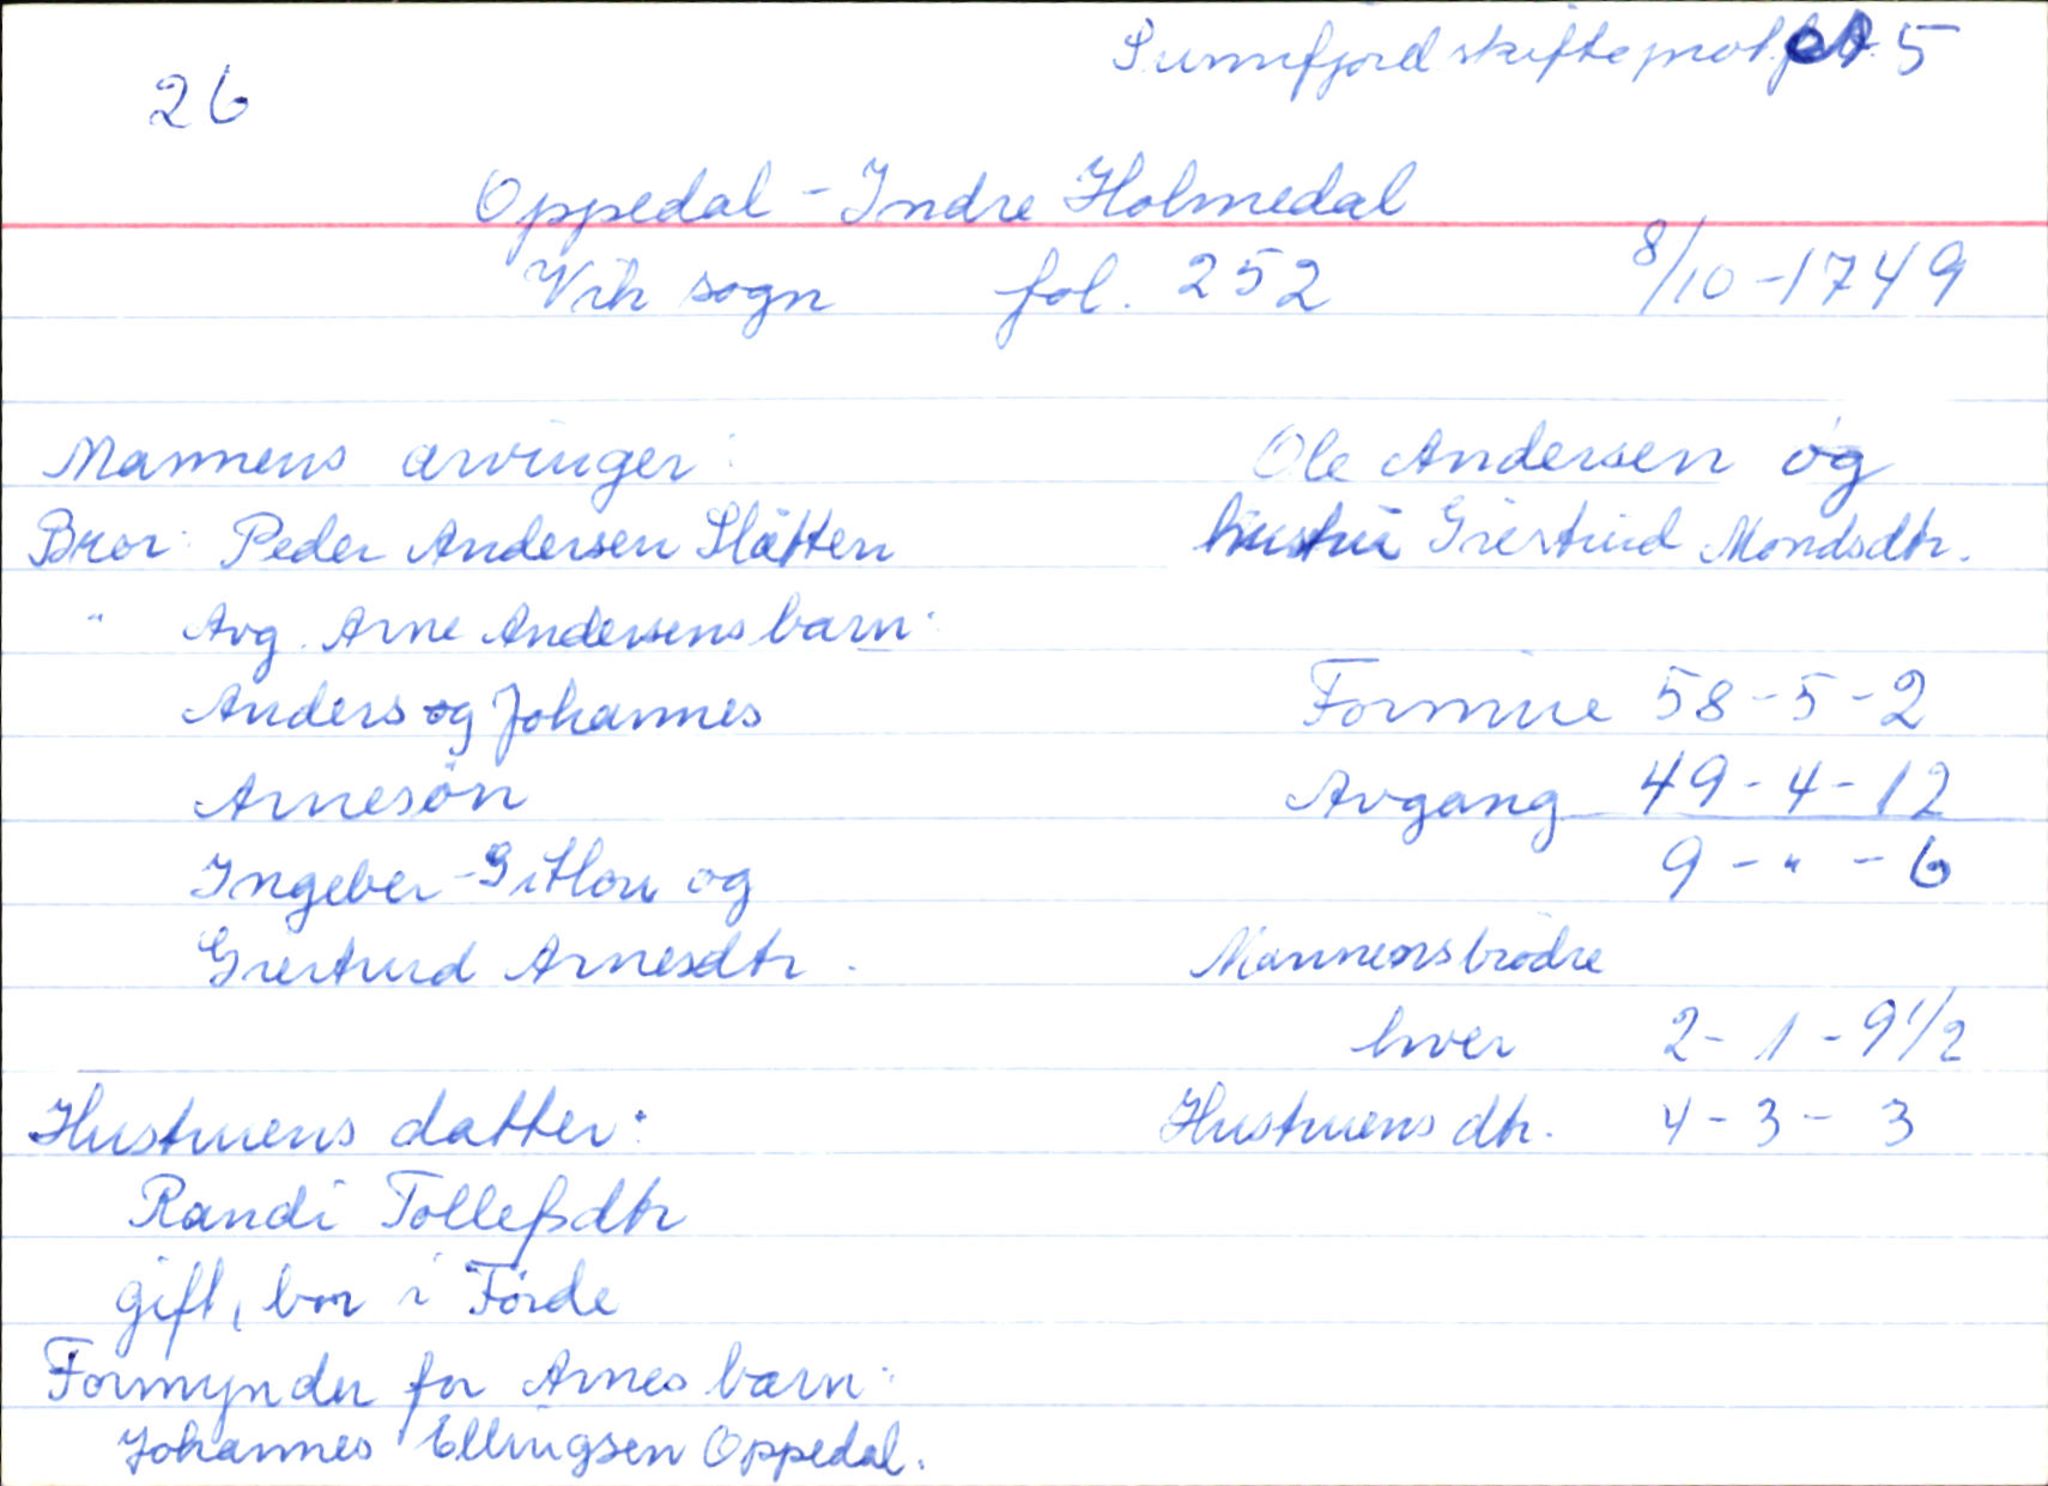 Sunnfjord skifteprot. 5
26
Oppedal - Indre Holmedal
Vik sogn fol. 252 8/10-1749
Mannens arvinger:
Bror: Peder Andersen Slåtten
" Avg. Arne Andersens barn:
Anders og Johannes
Arnesön
Ingeber - Sithou og
Giertrud Arnesdtr.
Hustruens datter:
Randi Tollefsdtr
gift, bor i Förde
Formynder for Arnes barn:
Johannes Ellingsen Oppedal.
Ole Andersen og
hustru Giertrud Mondsdtr.
Formue 58-5-2
Avgang 49-4-12
9 - " - 6
Mannens brödre
hver 2-1-9 1/2
Hustruens dtr. 4-3-3